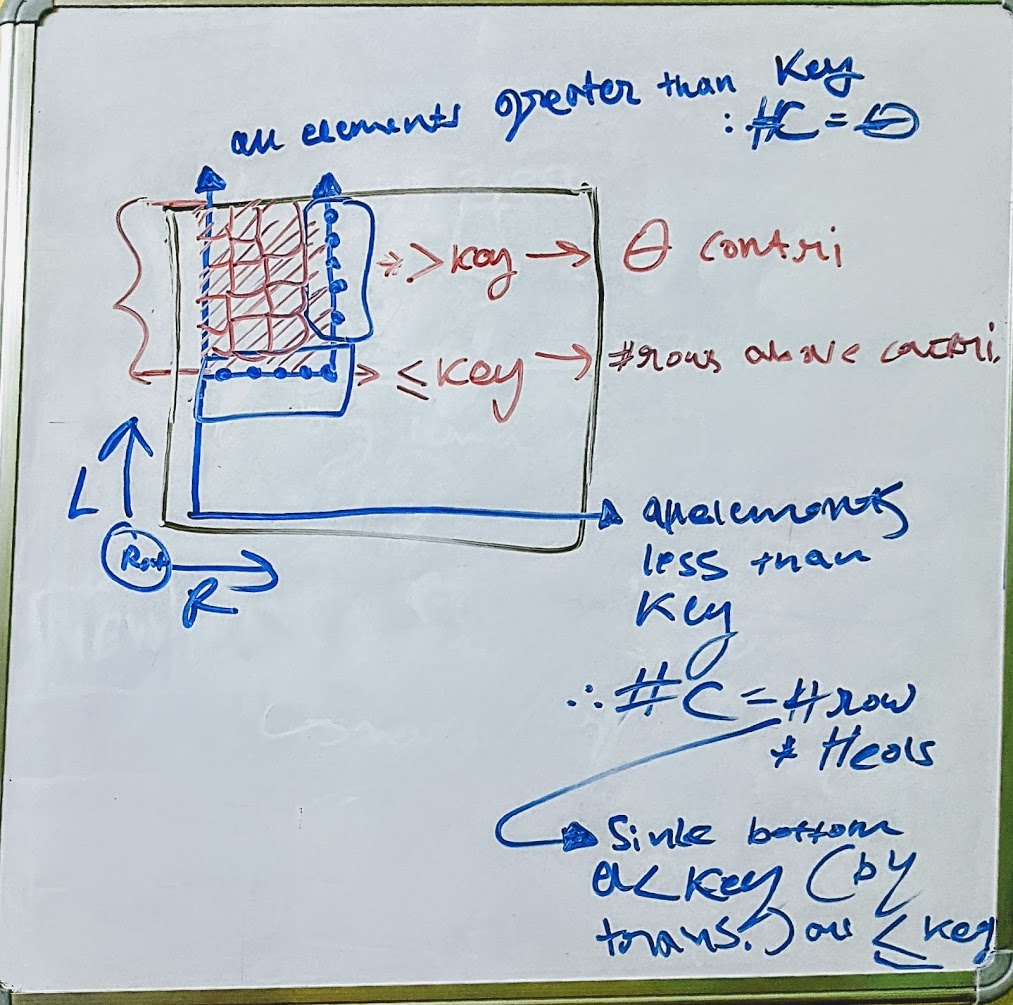 all elements greater than Key
: #C = 0
> key → 0 contri
≤ Key → #rows above contri.
L
Root
R
all elements
less than
Key
∴ # C = # row
* # cols
Since bottom
el < Key (by
trans.) all ≤ key